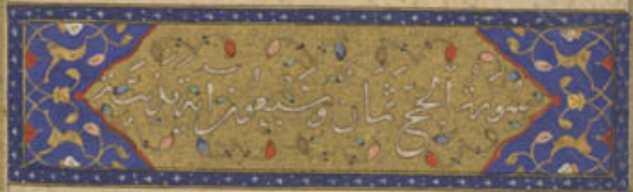 سورة الحج ثمان وسبعون آية مدنية